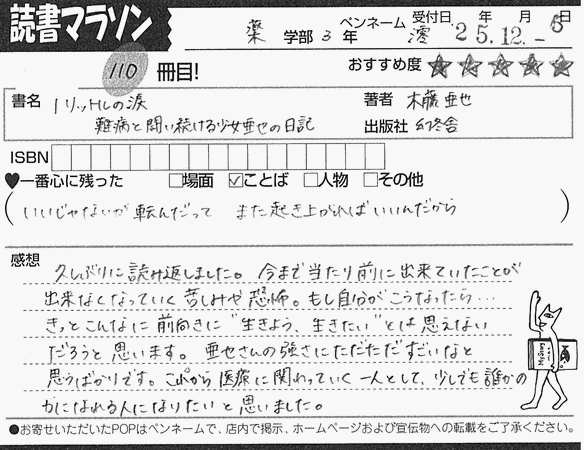 読書マラソン
薬 学部 3 年 ペンネーム 澪 受付日 25年12月-5日
110 冊目! おすすめ度 ★★★★★
書名 1リットルの涙 著者 木藤亜也
難病と闘い続ける少女亜也の日記 出版社 幻冬舎
ISBN
♥一番心に残った □場面 ☑ことば □人物 □その他
(いいじゃないか 転んだって また起き上がればいいんだから)
感想
久しぶりに読み返しました。今まで当たり前に出来ていたことが
出来なくなっていく苦しみや恐怖。もし自分がこうなったら…
きっとこんなに前向きに"生きよう、生きたい"とは思えない
だろうと思います。亜也さんの強さにただただすごいなと
思うばかりです。これから医療に関わっていく一人として、少しでも誰かの
力になれる人になりたいと思いました。
●お寄せいただいたPOPはペンネームで、店内で掲示、ホームページおよび宣伝物への転載をご了承ください。